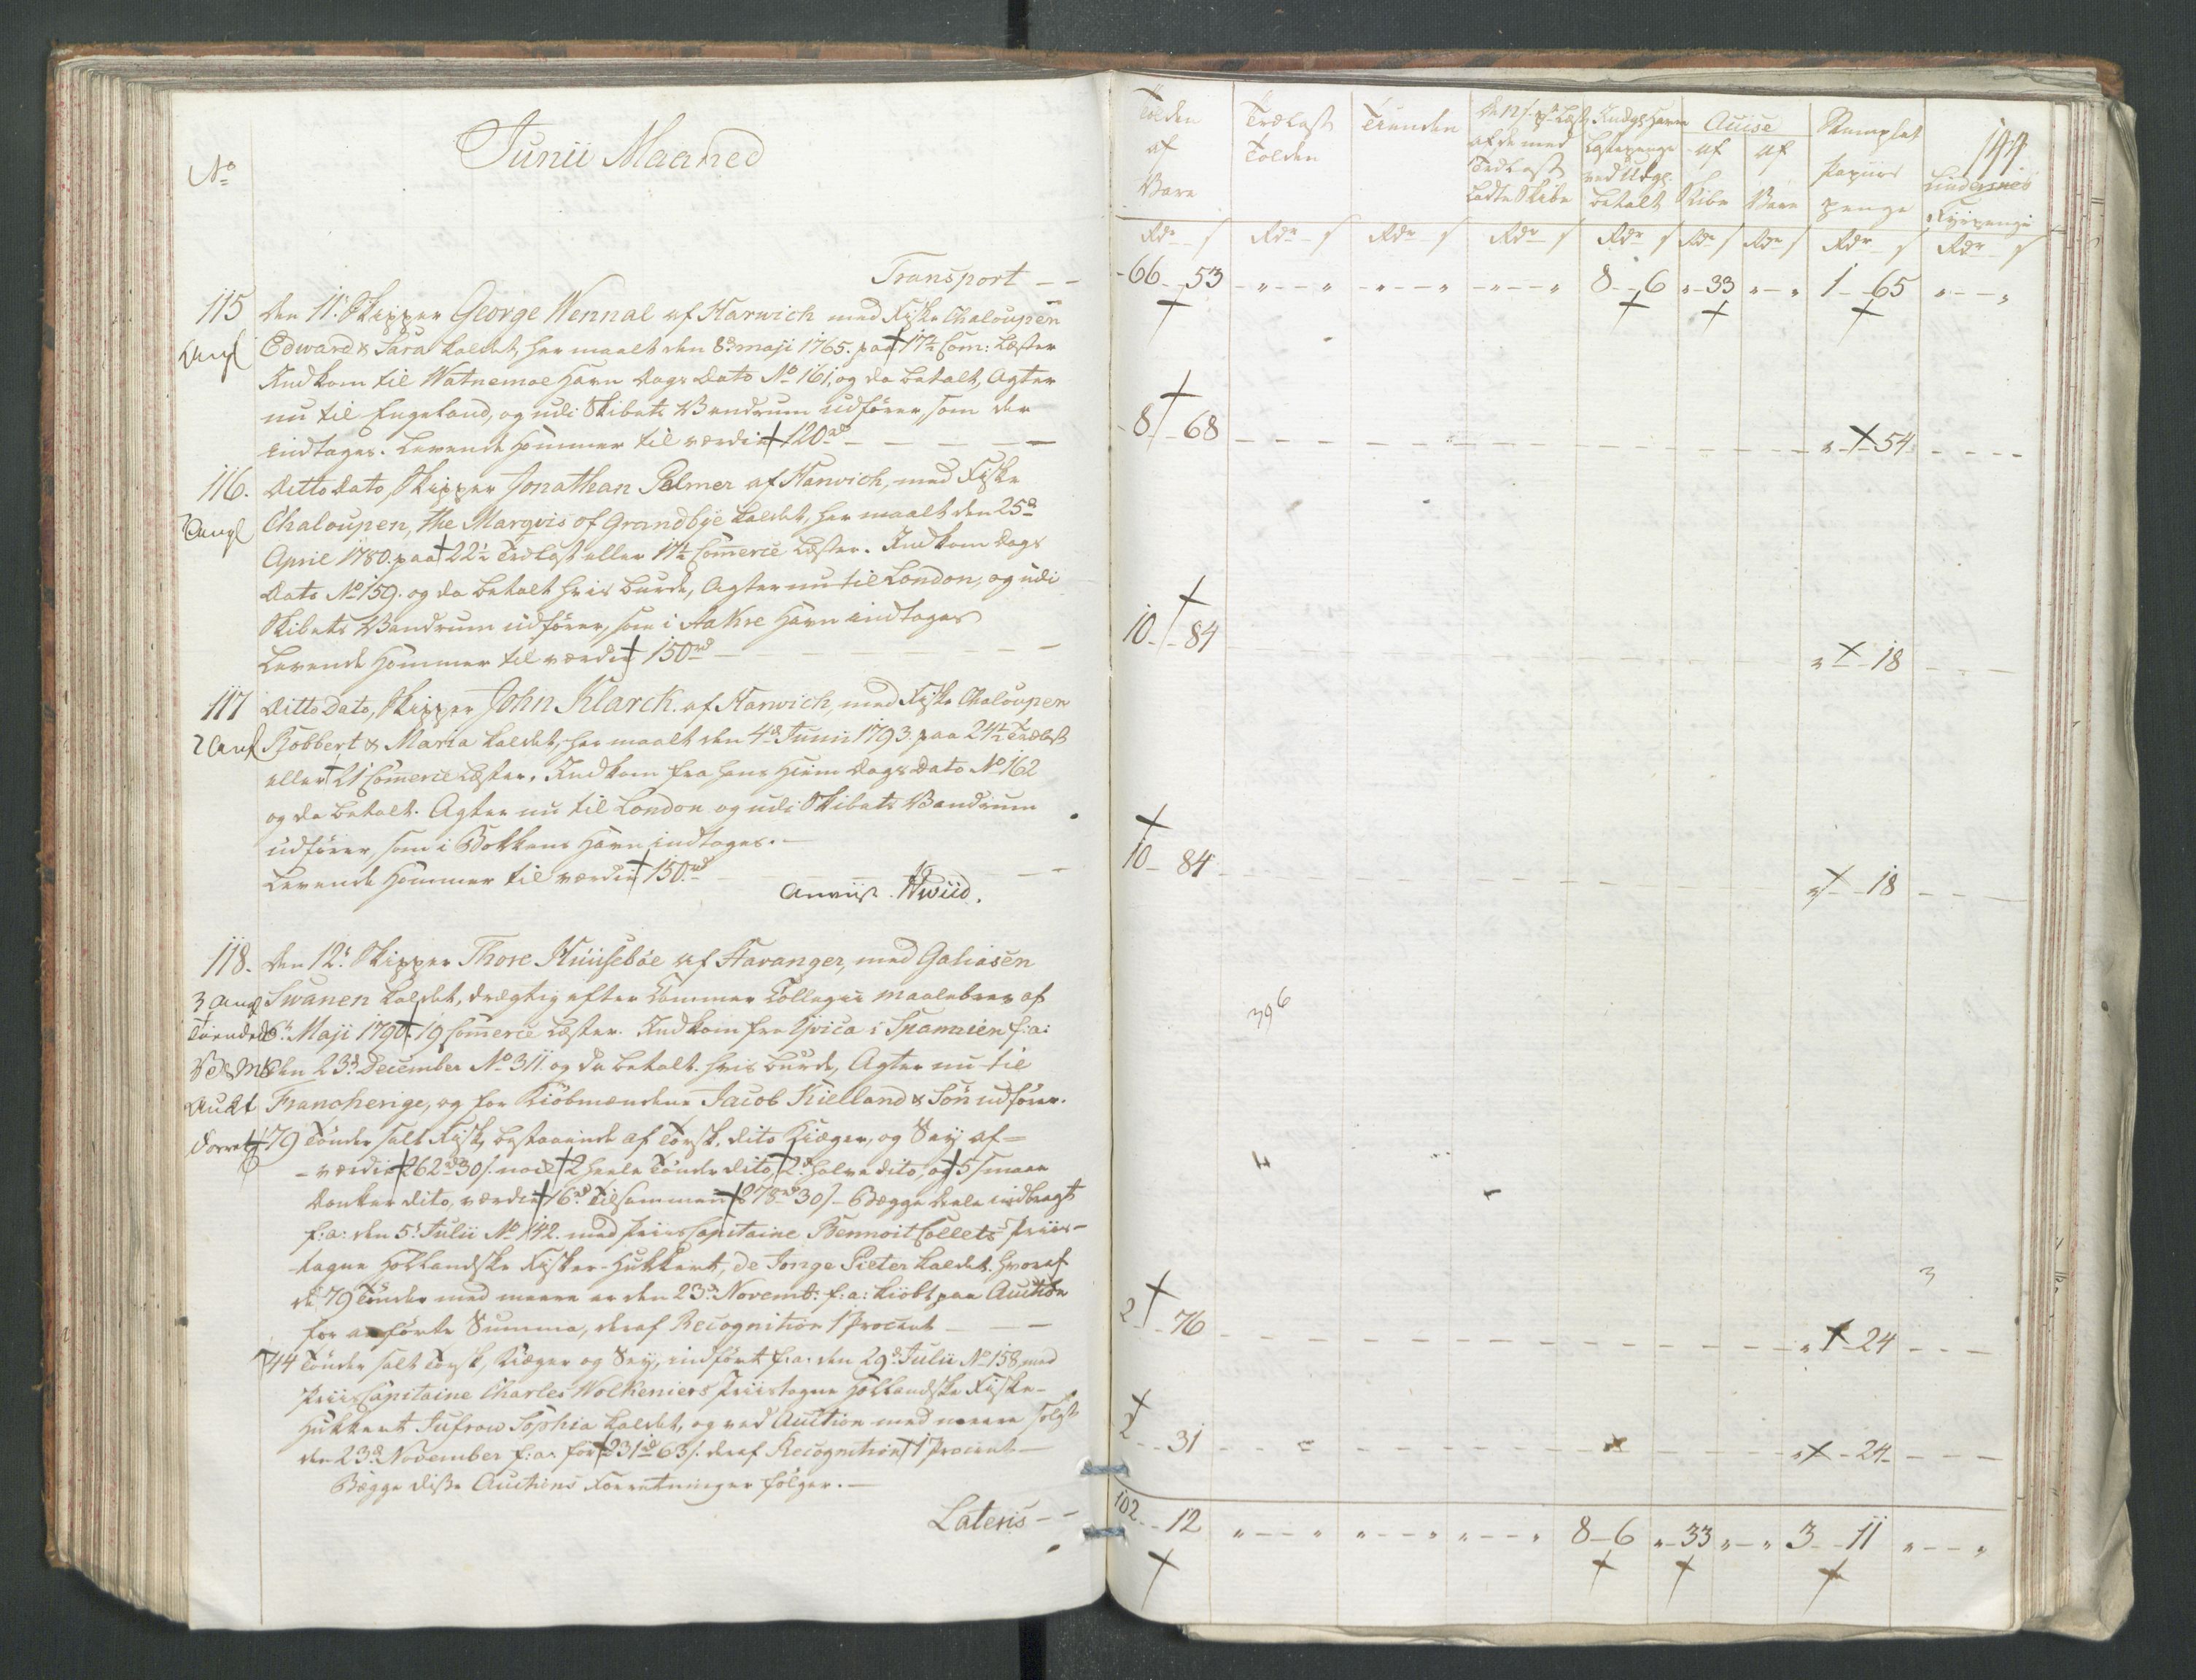 No
Junii Maaned
Transport
115 den 11te Skipper George Wennal af Harwich med Fiske Chaloupen
Angl Edward & Sara kaldet, her maalt den 8de maji 1765. paa 17½ Com: Læster
Indkom til Watnemoe Havn dags dato No 161, og da betalt, Agter
nu til Engeland, og udi Skibets Bandrum udfører, som der
indtages. Levende Hommer til værdie 120rd
116. ditto dato, Skipper Jonathan Palmer af Harwich, med Fiske
2 Angl Chaloupen, the Marqvis of Grandbÿe kaldet, her maalt den 25de
April 1780. paa 22½ Trælast eller 17½ Commerce Læster. Indkom dags
dato No 159. og da betalt hvis burde, Agter nu til London, og udi
Skibets Bandrum udfører, som i Aakre Havn indtages
Levende Hommer til værdie 150rd
117 ditto dato, Skipper John Klarck af Harwich, med Fiske Chaloupen
2 Angl Robbert & Maria kaldet, her maalt den 4de Junii 1793. paa 24½ Trælast
eller 21 Commerce Læster. Indkom fra hans Hiem dags dato No 162
og da betalt. Agter nu til London og udi Skibets Bandrum
udfører, som i Bokkens Havn indtages.
Levende Hommer til værdie 150rd
Anviist. HWiid.
118. den 12te Skipper Thore Huusebøe af Stavanger, med Galiasen
3 Angl Swanen kaldet, drægtig efter Cammer Collegii maalebrev af
6te Maji 1790. 19 Commerce Læster. Indkom fra Yvica i Spannien f: a:
den 23de December No 311. og da betalt. hvis burde, Agter nu til
Auct Francherige, og for Kiøbmændene Jacob Kielland & Søn udfører.
Forretn 179 Tønder salt Fisk, bestaaende af Torsk, dito Kiæger, og Sey af
værdie 262rd 30s. nock 2 heele Tønder dito, 2de halve dito, og 5 smaa
Danker dito, værdie 16rd Tilsammen 278rd 30s. Begge deele indbragt
f: a: den 5te Julii No 142. med Priis Capitaine Bennoit Collets Priis-
tagne Hollandske Fisker-Hukkert, de Jonge Pieter kaldet. hvoraf
de 79 Tønder med meere er den 23de Novemb: f: a: kiøbt paa Auction
for anførte Summa, deraf Recognition 1 Procent
44 Tønder salt Torsk, Kiæger og Sey, indført f: a: den 29de Julii No 158, med
Priis Capitaine Charles Wolkeniers Priistagne Hollandske Fiske-
Hukkert Jufrow Sophia kaldet, og ved Auction med meere solgt
den 23de November f: a: for 231rd 63s. deraf Recognition 1 Procent
Begge disse Auctions Forretninger følger.
Lateris
144
Tolden af Vare
Trælast Tolden
Tienden
Indgs: Havn Lastepenge ved Udgs: betalt
Accise
af Skibe
af Vare
Stemplet Papiirs penge
Lindersnes Fyrpenge
Rdr s Rdr s Rdr s Rdr s Rdr s Rdr s Rdr s Rdr s Rdr s
66 53 8 6 " 33 1 65
8 68 " 54
10 84 " 18
10 84 " 18
396
3
2 76 " 24
2 31 " 24
102 12 8 6 " 33 3 11